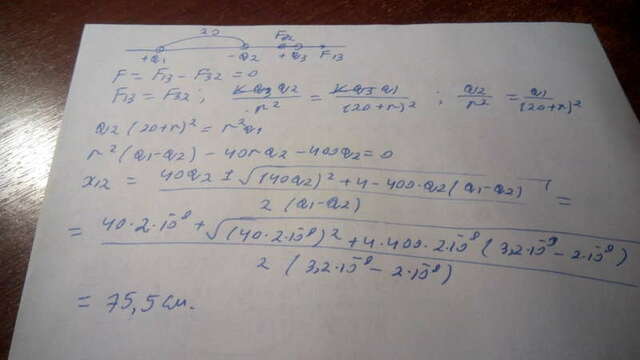 20 F32
+q1 -q2 +q3 F13
F = F13 - F32 = 0
F13 = F32 ; kq3 q2 / r² = kq3 q1 / (20+r)² ; q2 / r² = q1 / (20+r)²
q2 (20+r)² = r² q1
r² (q1-q2) - 40rq2 - 400q2 = 0
x12 = 40q2 ± √(40q2)² + 4·400·q2 (q1-q2) / 2 (q1-q2) =
= 40·2·10⁻⁹ + √(40·2·10⁻⁹)² + 4·400·2·10⁻⁹ (3,2·10⁻⁹ - 2·10⁻⁹) / 2 (3,2·10⁻⁹ - 2·10⁻⁹)
= 75,5 см.